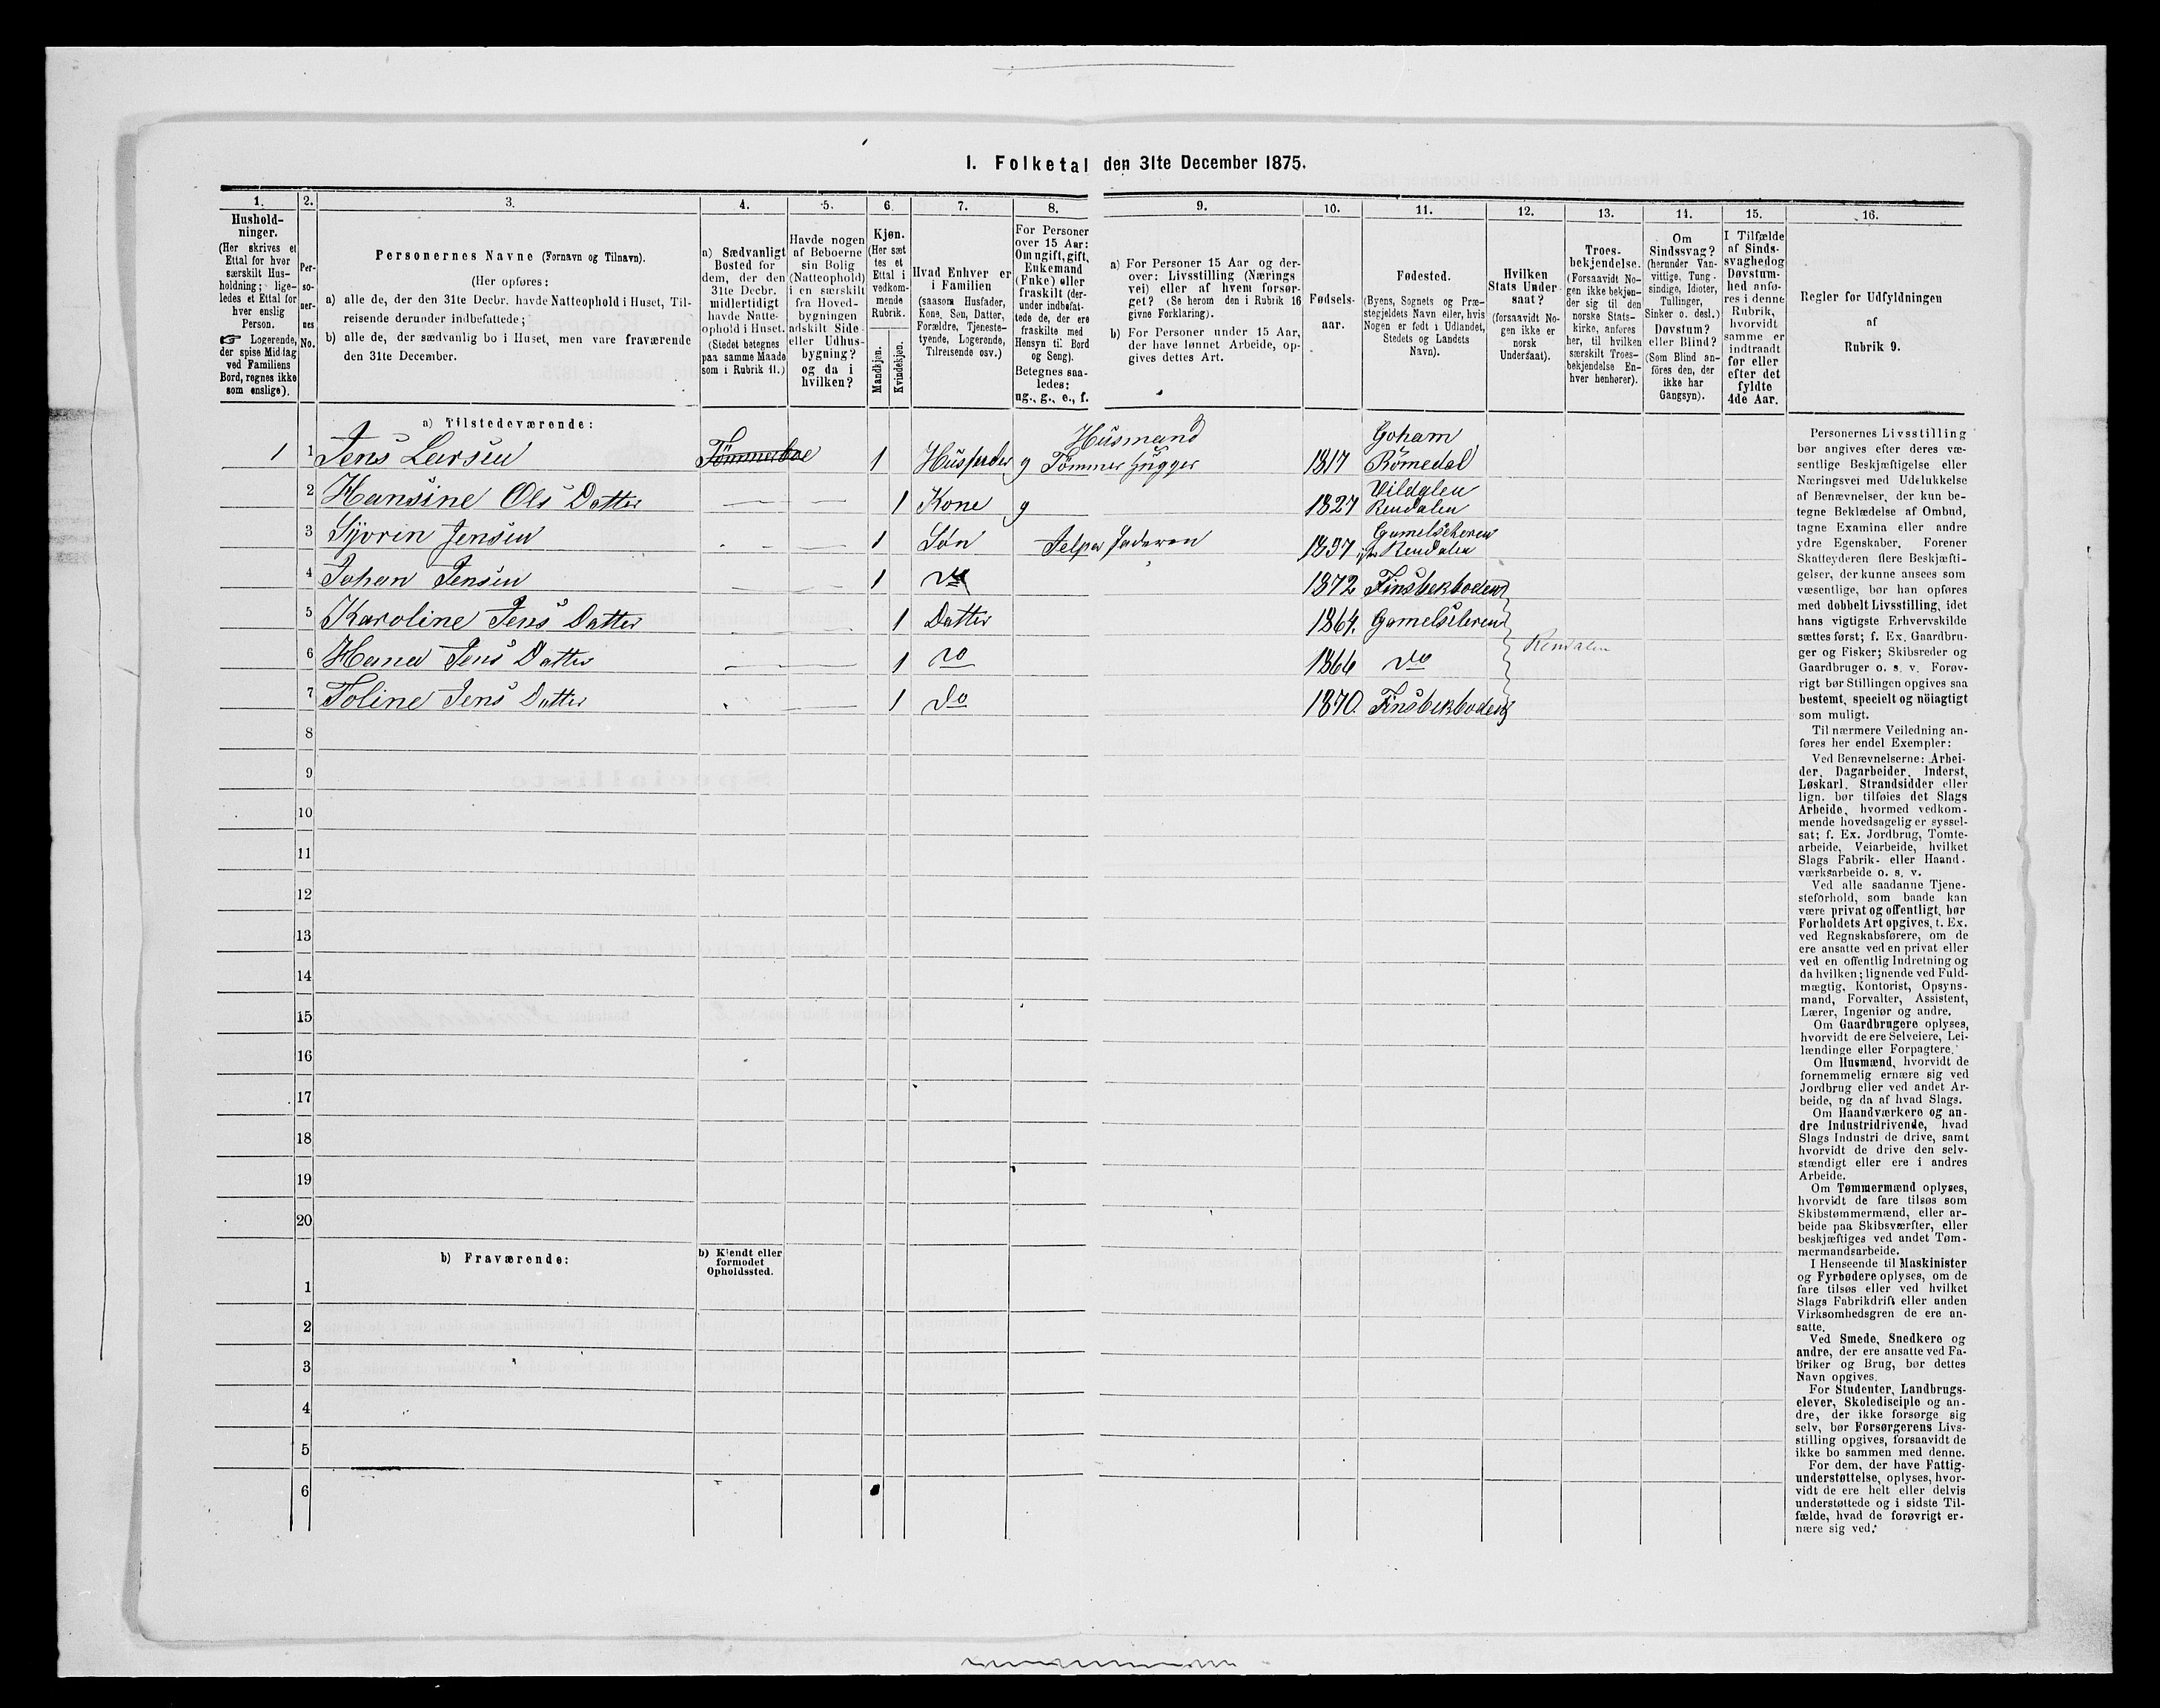 I. Folketal den 31te December 1875.
1. 2. 3. 4. 5. 6. 7. 8. 9. 10. 11. 12. 13. 14. 15. 16.
Hushold-
ninger.
(Her skrives et
Ettal for hver
særskilt Hus-
holdning; lige-
ledes et Ettal for
hver enslig
Person.
☞ Logerende,
der spise Middag
ved Familiens
Bord, regnes ikke
som enslige).
Per-
so-
ner-
nes
No.
Personernes Navne (Fornavn og Tilnavn).
(Her opføres:
a) alle de, der den 31te Decbr. havde Natteophold i Huset, Til-
reisende derunder indbefattede;
b) alle de, der sædvanlig bo i Huset, men vare fraværende
den 31te December.
a) Sædvanligt
Bosted for
dem, der den
31te Decbr.
midlertidigt
havde Natte-
ophold i Huset.
(Stedet betegnes
paa samme Maade
som i Rubrik 11.)
Havde nogen
af Beboerne
sin Bolig
(Natteophold)
i en særskilt
fra Hoved-
bygningen
adskilt Side
eller Udhus-
bygning?
og da i
hvilken?
Kjøn.
(Her sæt
tes et
Ettal i
vedkom-
mende
Rubrik.
Mandkjøn.
Kvindekjøn.
Hvad Enhver er
i Familien
(saasom Husfader,
Kone, Søn, Datter,
Forældre, Tjeneste-
tyende, Logerende,
Tilreisende osv.)
For Personer
over 15 Aar:
Om ugift, gift,
Enkemand
(Enke) eller
fraskilt (der-
under indbefat-
tede de, der ere
fraskilte med
Hensyn til Bord
og Seng).
Betegnes saa-
ledes:
ug., g., e., f.
a) For Personer 15 Aar og der-
over: Livsstilling (Nærings
vei) eller af hvem forsør-
get? (Se herom den i Rubrik 16
givne Forklaring).
b) For Personer under 15 Aar,
der have lønnet Arbeide, op-
gives dettes Art.
Fødsels-
aar.
Fødested.
(Byens, Sognets og Præ-
stegjeldets Navn eller, hvis
Nogen er født i Udlandet,
Stedets og Landets
Navn).
Hvilken
Stats Under-
saat?
(forsaavidt No-
gen ikke er
norsk
Undersaat).
Troes-
bekjendelse.
(Forsaavidt No-
gen ikke bekjen-
der sig til den
norske Stats-
kirke, anføres
her, til hvilken
særskilt Troes-
bekjendelse En-
hver henhører).
Om
Sindssvag?
(herunder Van-
vittige, Tung-
sindige, Idioter,
Tullinger,
Sinker o. desl.)
Døvstum?
eller Blind?
(Som Blind an-
føres den, der
ikke har
Gangsyn).
I Tilfælde
af Sinds-
svaghed og
Døvstum-
hed anfø-
res i denne
Rubrik,
hvorvidt
samme er
indtraadt
før eller
efter det
fyldte
4de Aar.
Regler for Udfyldningen
af
Rubrik 9.
a) Tilstedeværende:
1 1 Jens Larsen Tömmerboe 1 Husfader g Husmand Tömmer hugger 1817 Römedal
2 Hansine Ols Datter 1 Kone g 1827 Rendalen
3 Jensen 1 Søn Rendalen
4 Johan Jensen 1 do 1872 Finsbekboden
5 Karoline Jens Datter 1 Datter 1864.
6 Hana Jens Datter 1 do 1866 do Rendalen
7 Toline Jens Datter 1 do 1870. Finsbekboden
8
9
10
11
12
13
14
15
16
17
18
19
20
b) Fraværende:
b) Kjendt eller
formodet
Opholdssted.
1
2
3
4
5
6
Personernes Livsstilling
bør angives efter deres væ-
sentlige Beskjæftigelse eller
Næringsvei med Udelukkelse
af Benævnelser, der kun be-
tegne Beklædelse af Ombud,
tagne Examina eller andre
ydre Egenskaber. Forener
Skatteyderen flere Beskjæfti-
gelser, der kunne ansees som
væsentlige, bør han opføres
med dobbelt Livsstilling, idet
hans vigtigste Erhvervskilde
sættes først; f. Ex. Gaardbru-
ger og Fisker; Skibsreder og
Gaardbruger o. s. v. Forøv-
rigt bør Stillingen opgives saa
bestemt, specielt og nöiagtigt
som muligt.
Til nærmere Veiledning an-
føres her endel Exempler:
Ved Benævnelserne: Arbei-
der, Dagarbeider, Inderst,
Løskarl, Strandsidder eller
lign. bør tilføies det Slags
Arbeide, hvormed vedkom-
mende hovedsagelig er syssel-
sat; f. Ex. Jordbrug, Tomte-
arbeide, Veiarbeide, hvilket
Slags Fabrik- eller Haand-
værksarbeide o. s. v.
Ved alle saadanne Tjene-
steforhold, som baade kan
være privat og offentligt, bør
Forholdets Art opgives, t. Ex.
ved Regnskabsførere, om de
ere ansatte ved en privat eller
ved en offentlig Indretning og
da hvilken; lignende ved Fuld-
mægtig, Kontorist, Opsyns-
mand, Forvalter, Assistent,
Lærer, Ingeniør og andre.
Om Gaardbrugere oplyses,
hvorvidt de ere Selveiere, Lei-
lændinge eller Forpagtere.
Om Husmænd, hvorvidt de
fornemmelig ernære sig ved
Jordbrug eller ved andet Ar-
beide, og da af hvad Slags.
Om Haandværkere og an-
dre Industridrivende, hvad
Slags Industri de drive, samt
hvorvidt de drive den selv-
stændigt eller ere i andres
Arbeide.
Om Tømmermænd oplyses,
hvorvidt de fare tilsøs som
Skibstømmermænd, eller ar-
beide paa Skibsværfter, eller
beskjæftiges ved andet Tøm-
mermandsarbeide.
I Henseende til Maskinister
og Fyrbødere oplyses, om de
fare tilsøs eller ved hvilket
Slags Fabrikdrift eller anden
Virksomhedsgren de ere an-
satte.
Ved Smede, Snedkere og
andre, der ere ansatte ved Fa-
briker og Brug, bør dettes
Navn opgives.
For Studenter, Landbrugs-
elever, Skoledisciple og an-
dre, der ikke forsørge sig
selv, bør Forsørgerens Livs-
stilling opgives, forsaavidt de
ikke bo sammen med denne.
For dem, der have Fattig-
understøttelse, oplyses, hvor-
vidt de ere helt eller delvis
understøttede og i sidste Til-
fælde, hvad de forøvrigt er-
nære sig ved.